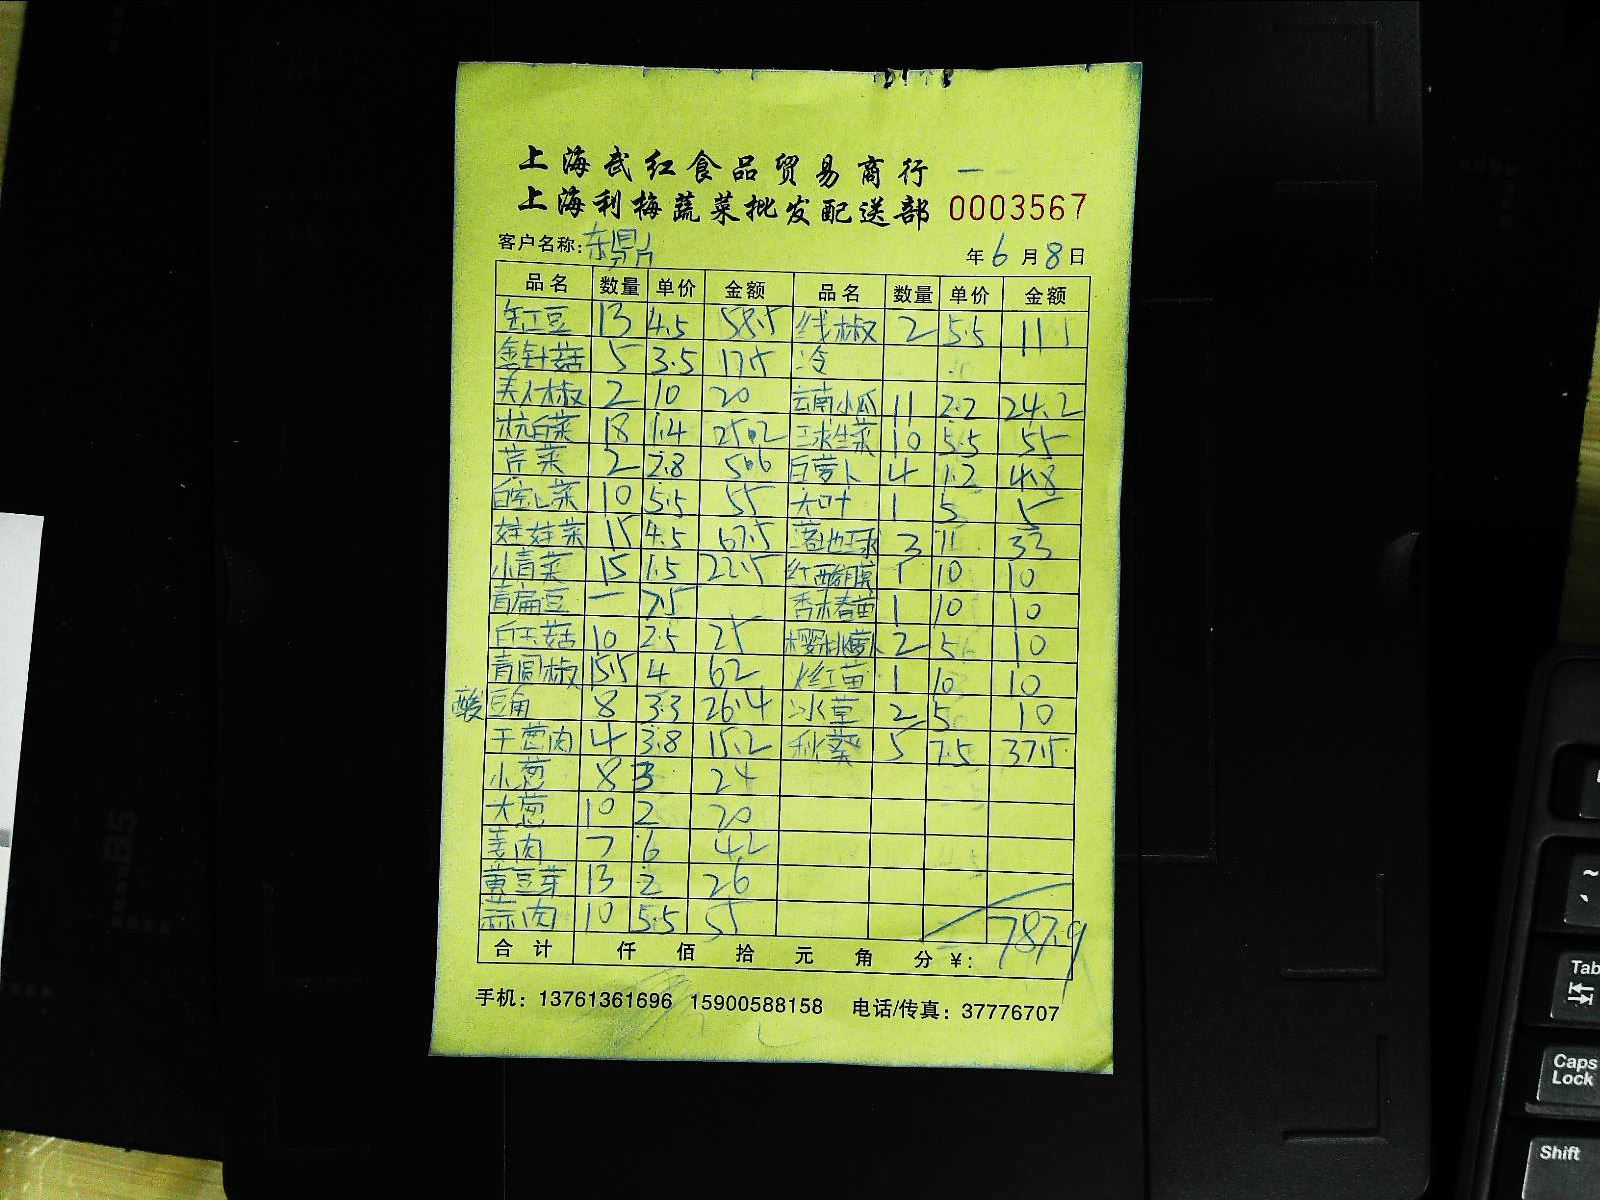 上海武红食品贸易商行 一
上海利梅蔬菜批发配送部 0003567
客户名称:东鼎 年6月8日
品名 数量 单价 金额 品名 数量 单价 金额
缸豆 13 4.5 58.5 线椒 2 5.5 11
金针菇 5 3.5 17.5 冷
美人椒 2 10 20 云南小瓜 11 2.2 24.2
杭白菜 18 1.4 25.2 球生菜 10 5.5 55
芹菜 2 2.8 5.6 白萝卜 4 1.2 4.8
白空心菜 10 5.5 55 大叶 1 5 5
娃娃菜 15 4.5 67.5 落地球 3 11 33
小青菜 15 1.5 22.5 红酸膜 1 10 10
青扁豆 一 7.5 香椿苗 1 10 10
白玉菇 10 2.5 25 樱桃萝卜 2 5 10
青圆椒 15.5 4 62 红苗 1 10 10
酸豆角 8 3.3 26.4 冰草 2 5 10
干葱肉 4 3.8 15.2 秋葵 5 7.5 37.5
小葱 8 3 24
大葱 10 2 20
姜肉 7 6 42
黄豆芽 13 2 26
蒜肉 10 5.5 55 787.9
合计 仟 佰 拾 元 角 分 ¥:
手机：13761361696 15900588158 电话/传真：37776707
B5
Tab
Caps Lock
Shift